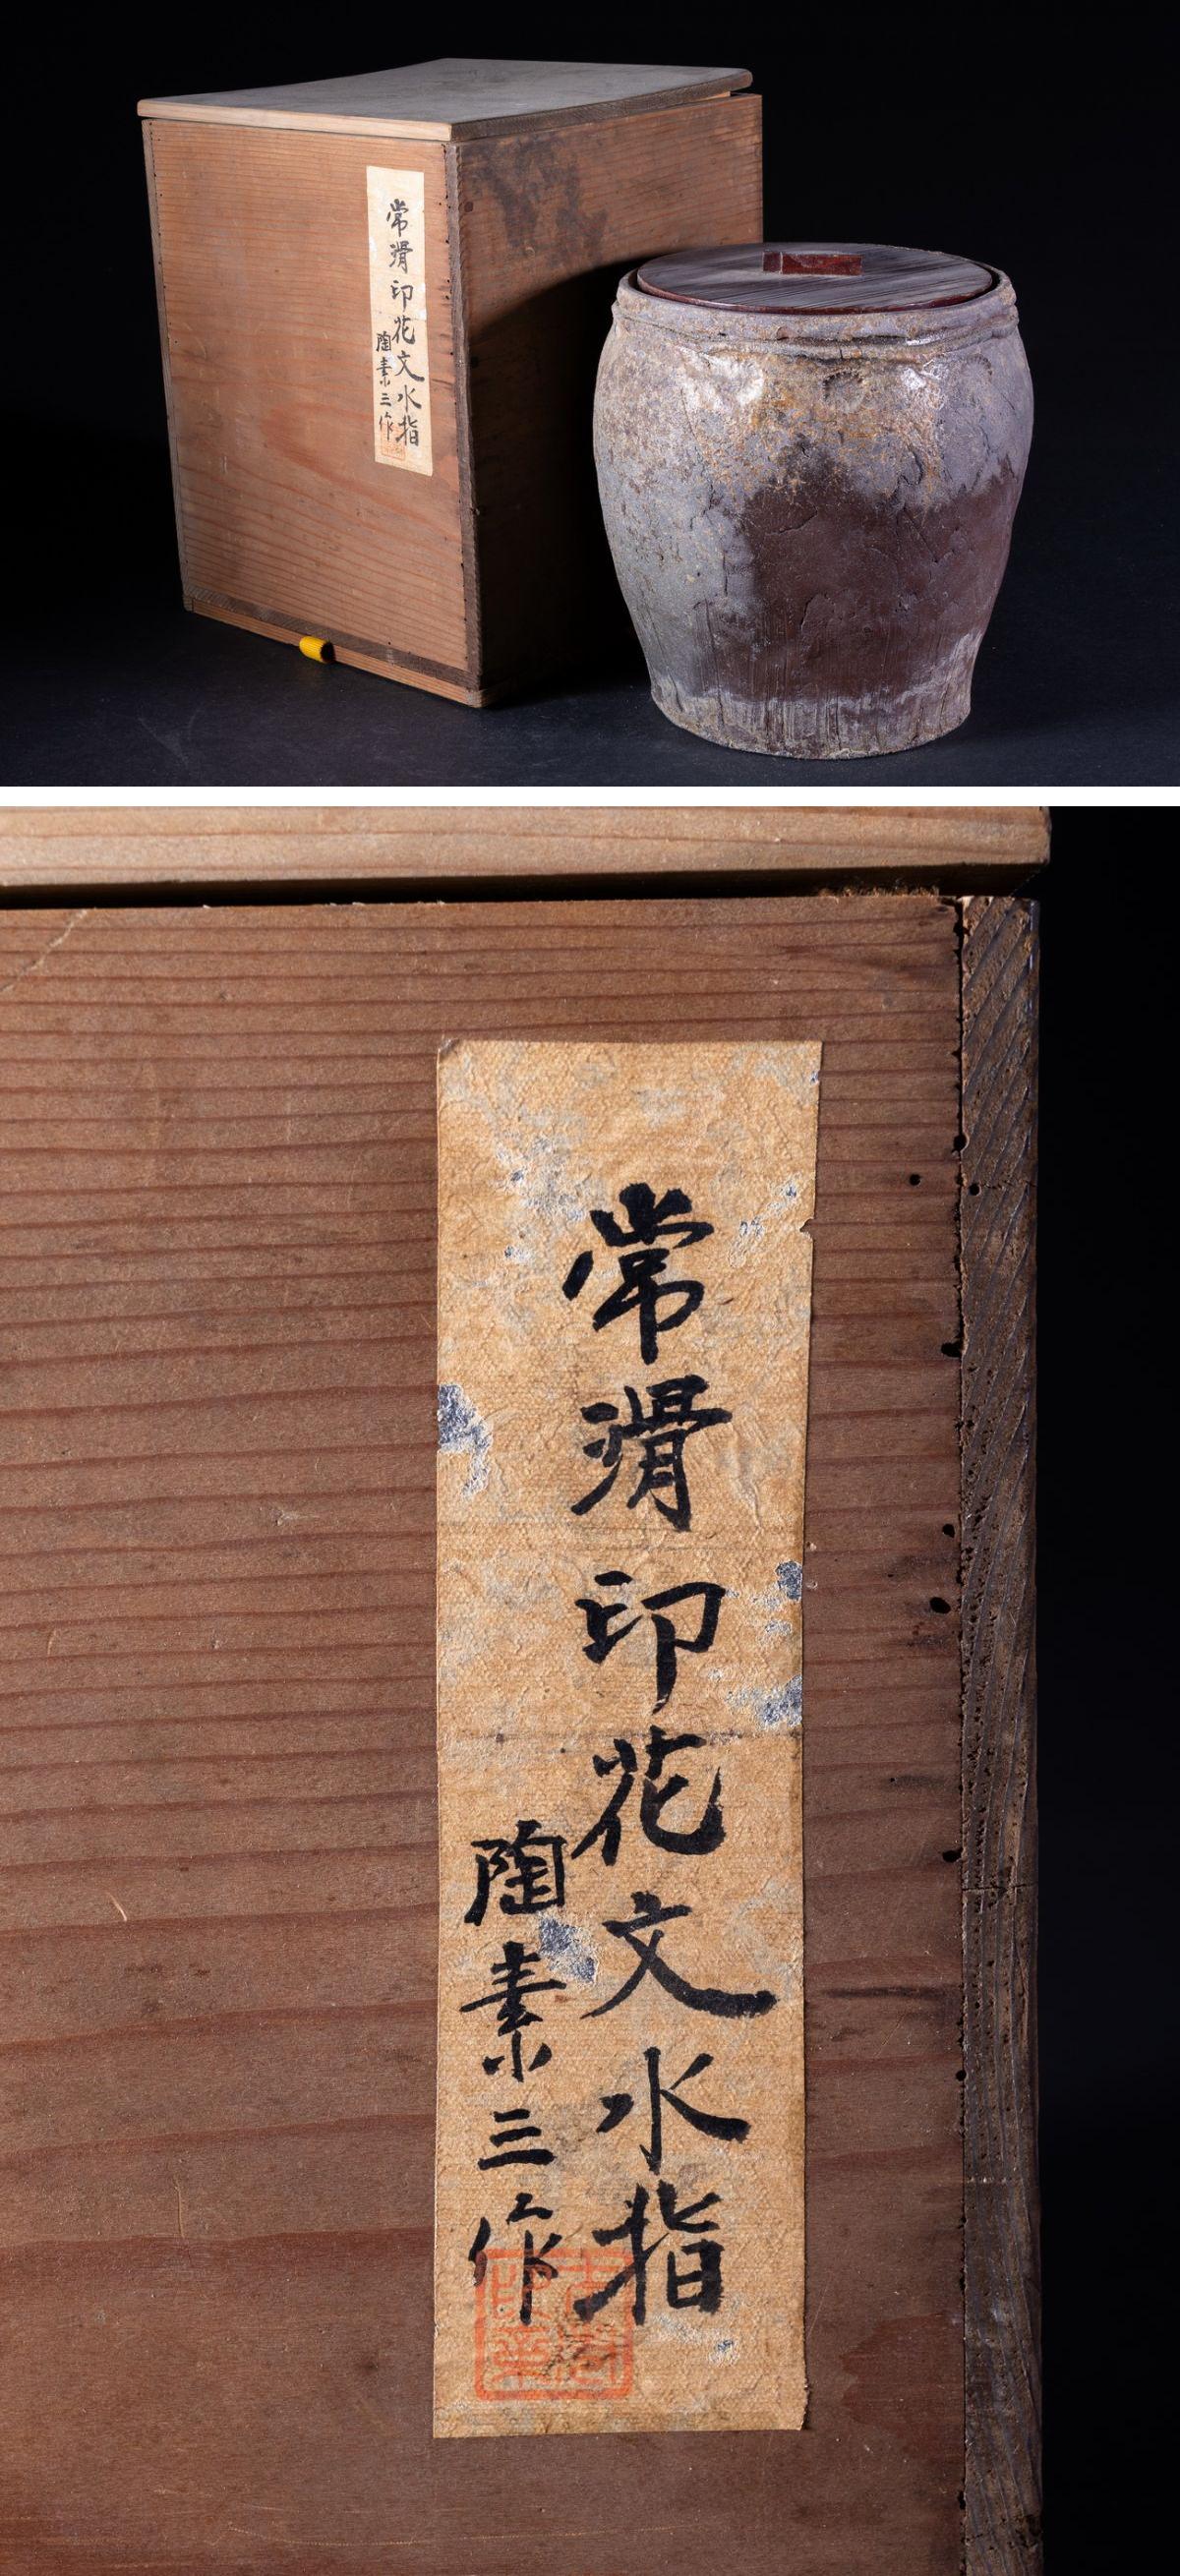 常滑印花文水指
陶素三作
常滑印花文水指
陶素三作